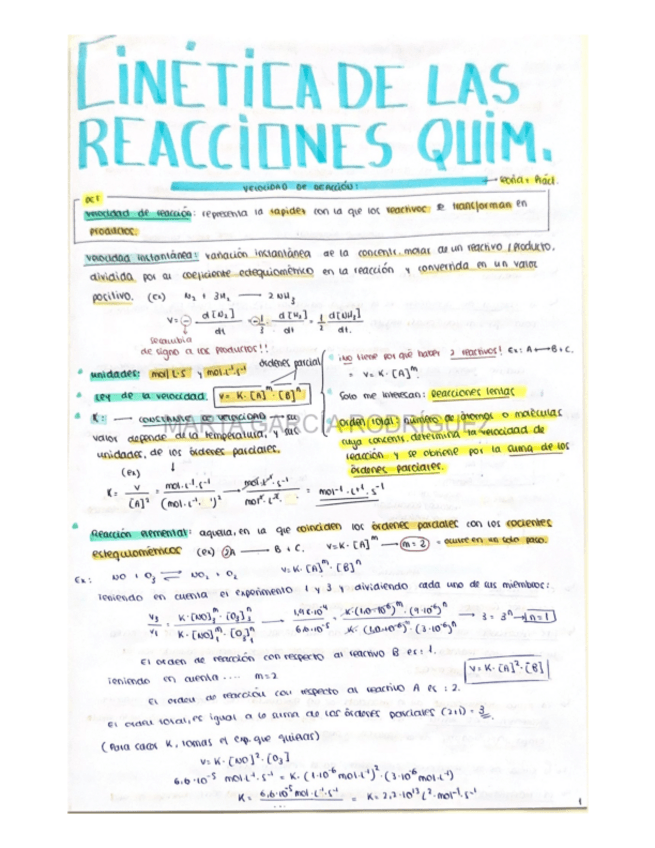 CINÉTICA DE LAS
REACCIONES QUIM.
VELOCIDAD DE REACCIÓN:
velocidad de reacción: representa la rapidez con la que los reactivos se transforman en
productos.
velocidad instantánea: variación instantánea de la concentr. molar de un reactivo / producto,
dividida por su coeficiente estequiométrico en la reacción y convertida en un valor
positivo. (ex) N₂ + 3H₂ → 2NH₃
V = - d[N₂]/dt = -1/3 · d[H₂]/dt = 1/2 d[NH₃]/dt.
se cambia
de signo a los productos!!
órdenes parcial
unidades: mol/L·s y mol·L⁻¹·s⁻¹
Ley de la velocidad. V = K·[A]ᵐ·[B]ⁿ
K: → constante de velocidad → su
valor depende de la temperatura, y sus
unidades, de los órdenes parciales.
(ex)
K = V/[A]² = mol·L⁻¹·s⁻¹/(mol·L⁻¹)²
= mol⁻¹·L⁺¹·s⁻¹
¡No tiene por qué haber 2 reactivos! Ex: A → B+C.
= V = K·[A]ᵐ
Solo me interesan: reacciones lentas
orden (total): número de átomos o moléculas
cuya concentr. determina la velocidad de
reacción y se obtiene por la suma de los
órdenes parciales.
MARTA GARCÍA RODRÍGUEZ
Reacción elemental: aquella, en la que coinciden los órdenes parciales con los cocientes
estequiométricos (ex) 2A → B + C. V = K·[A]ᵐ → m = 2 = ocurre en un solo paso.
Ex: NO + O₃ ⇌ NO₂ + O₂ V = K·[A]ᵐ·[B]ⁿ
Teniendo en cuenta el experimento 1 y 3 y dividiendo cada uno de sus miembros:
V₃/V₁ = K·[NO]₃ᵐ·[O₃]₃ⁿ / K·[NO]₁ᵐ·[O₃]₁ⁿ → 3 = 3ⁿ → n = 1
El orden de reacción con respecto al reactivo B es: 1.
Teniendo en cuenta .... m = 2
V = K·[A]²·[B]
El orden de reacción con respecto al reactivo A es: 2.
El orden total, es igual a la suma de los órdenes parciales (2+1) = 3.
(Para sacar K, tomas el exp. que quieras)
V = K·[NO]²·[O₃]
6,6·10⁻⁵ mol·L⁻¹·s⁻¹ = K·(1·10⁻⁶ mol·L⁻¹)²·(3·10⁻⁶ mol·L⁻¹)
K = 6,6·10⁻⁵ mol·L⁻¹·s⁻¹ / ... = K = 2,2·10¹³ L²·mol⁻²·s⁻¹
1